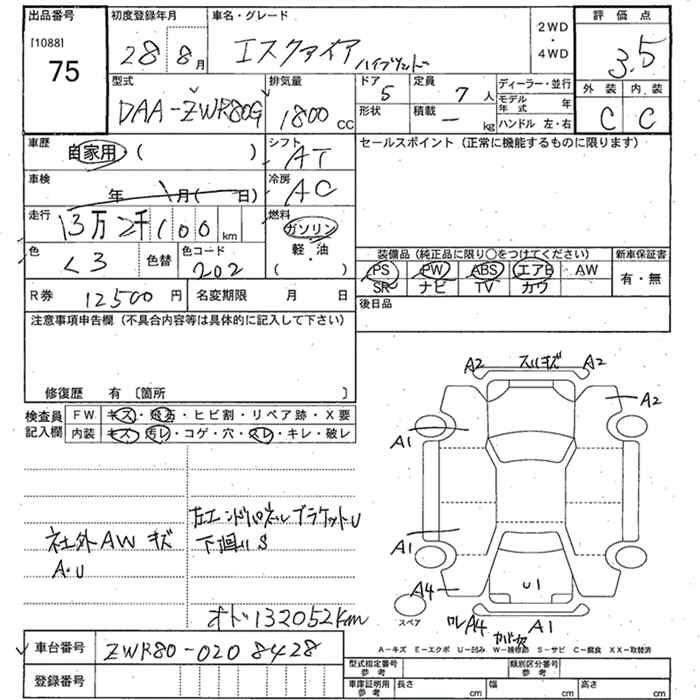 出品番号
[1088]
75
初度登録年月
28 8月
車名・グレード
エスクァイア ハイブリッド
2WD
・
4WD
評価点
3.5
外装 内装
C C
型式
DAA-ZWR80G
排気量
1800 cc
ドア
5
定員
7人
形状
積載
― kg
ディーラー・並行
モデル年式 年
ハンドル 左・右
車歴
自家用・( )
シフト
AT
セールスポイント (正常に機能するものに限ります)
車検
年 月( 日)
冷房
AC
走行
13万2千100km
燃料
ガソリン
軽・油
( )
色
色替
色コード
202
装備品(純正品に限り○をつけてください)
新車保証書
PS PW ABS エアB AW
SR ナビ TV カワ
有・無
R券 12500円
名変期限 月 日
後日品
注意事項申告欄(不具合内容等は具体的に記入して下さい)
修復歴 有〔箇所 〕
検査員記入欄
FW キズ・飛石・ヒビ割・リペア跡・X要
内装 キズ・汚レ・コゲ・穴・スレ・キレ・破レ
A2 スリキズ A2
A2
A1
A1
A4
U1
スペア
A4
A1
社外AW キズ
A・U
左エンドパネルブラケットU
下廻りS
オド132052km
A-キズ E-エクボ U-凹み W-補修跡 S-サビ C-腐食 XX-取替済
車台番号
ZWR80-0208428
登録番号
型式指定番号
参考
類別区分番号
参考
車庫証明用
参考
長さ cm
幅 cm
高さ cm